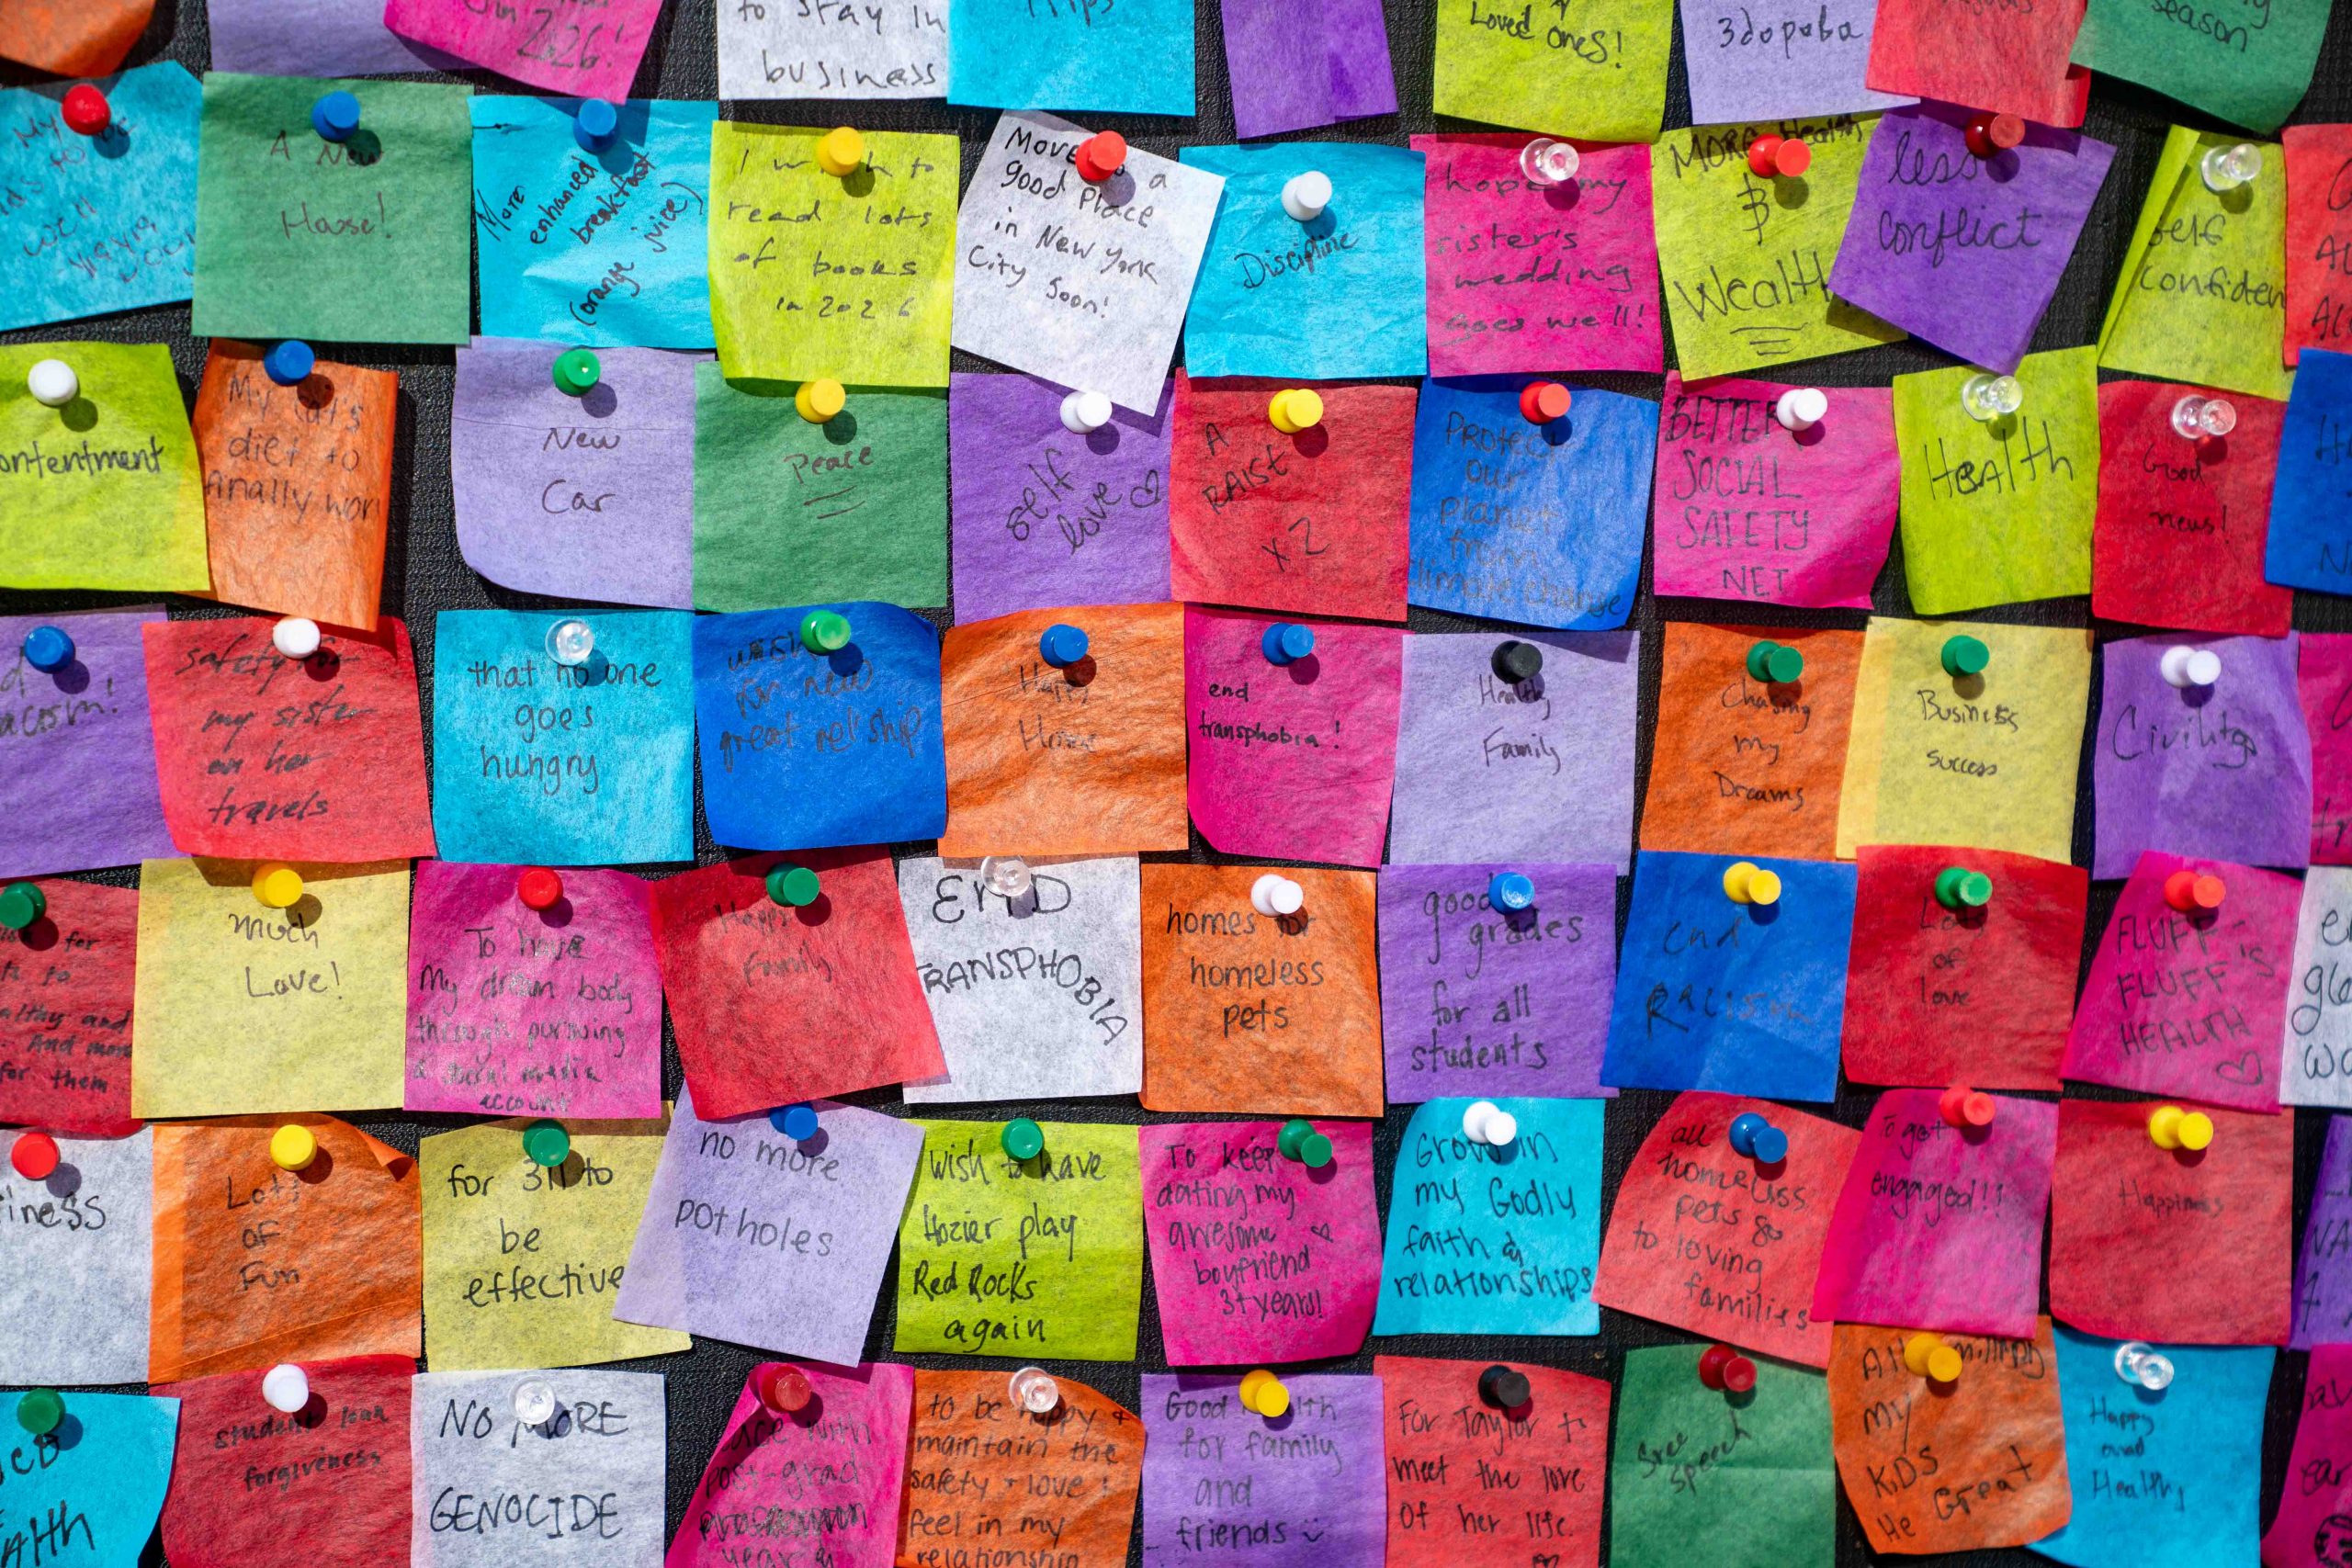 in 2026!
to stay in
business
Trips
Loved ones!
Здоровья
season
My
to
well
A New
House!
More
enhanced
breakfast
(orange juice)
I wish to
read lots
of books
in 2026
Move to a
good place
in New York
City Soon!
Discipline
hope my
sister's
wedding
goes well!
MORE Health
$
Wealth
less
conflict
self
confiden
ontentment
My cat's
diet to
finally wor
New
Car
Peace
self
love ♡
A
RAISE
x2
Protect
our
planet
from
climate change
BETTER
SOCIAL
SAFETY
NET
Health
Good
news!
acism!
safety for
my sister
on her
travels
that no one
goes
hungry
wish
for new
great rel'ship
Happy
Home
end
transphobia!
Healthy
Family
Chasing
my
Dreams
Business
success
Civility
for
to
althy and
And more
for them
Much
Love!
To have
My dream body
through pursuing
a social media
account
Happy
Family
END
TRANSPHOBIA
homes for
homeless
pets
good
grades
for all
students
End
RACISM
Lots
of
love
FLUFF-
FLUFF'S
HEALTH
♡
iness
Lots
OF
Fun
for 311 to
be
effective
no more
potholes
Wish to have
Hozier play
Red Rocks
again
To keep
dating my
awesome ♡
boyfriend
3+years!
Grow in
my Godly
faith &
relationships
all
homeless
pets go
to loving
families
To get
engaged!!
Happiness
student loan
forgiveness
NO MORE
GENOCIDE
with
post-grad
year &
to be happy +
maintain the
safety + love I
feel in my
relationship
Good health
for family
and
friends
For Taylor to
meet the love
of her life.
free
speech
My
KiDS
He Great
Happy
and
Healthy